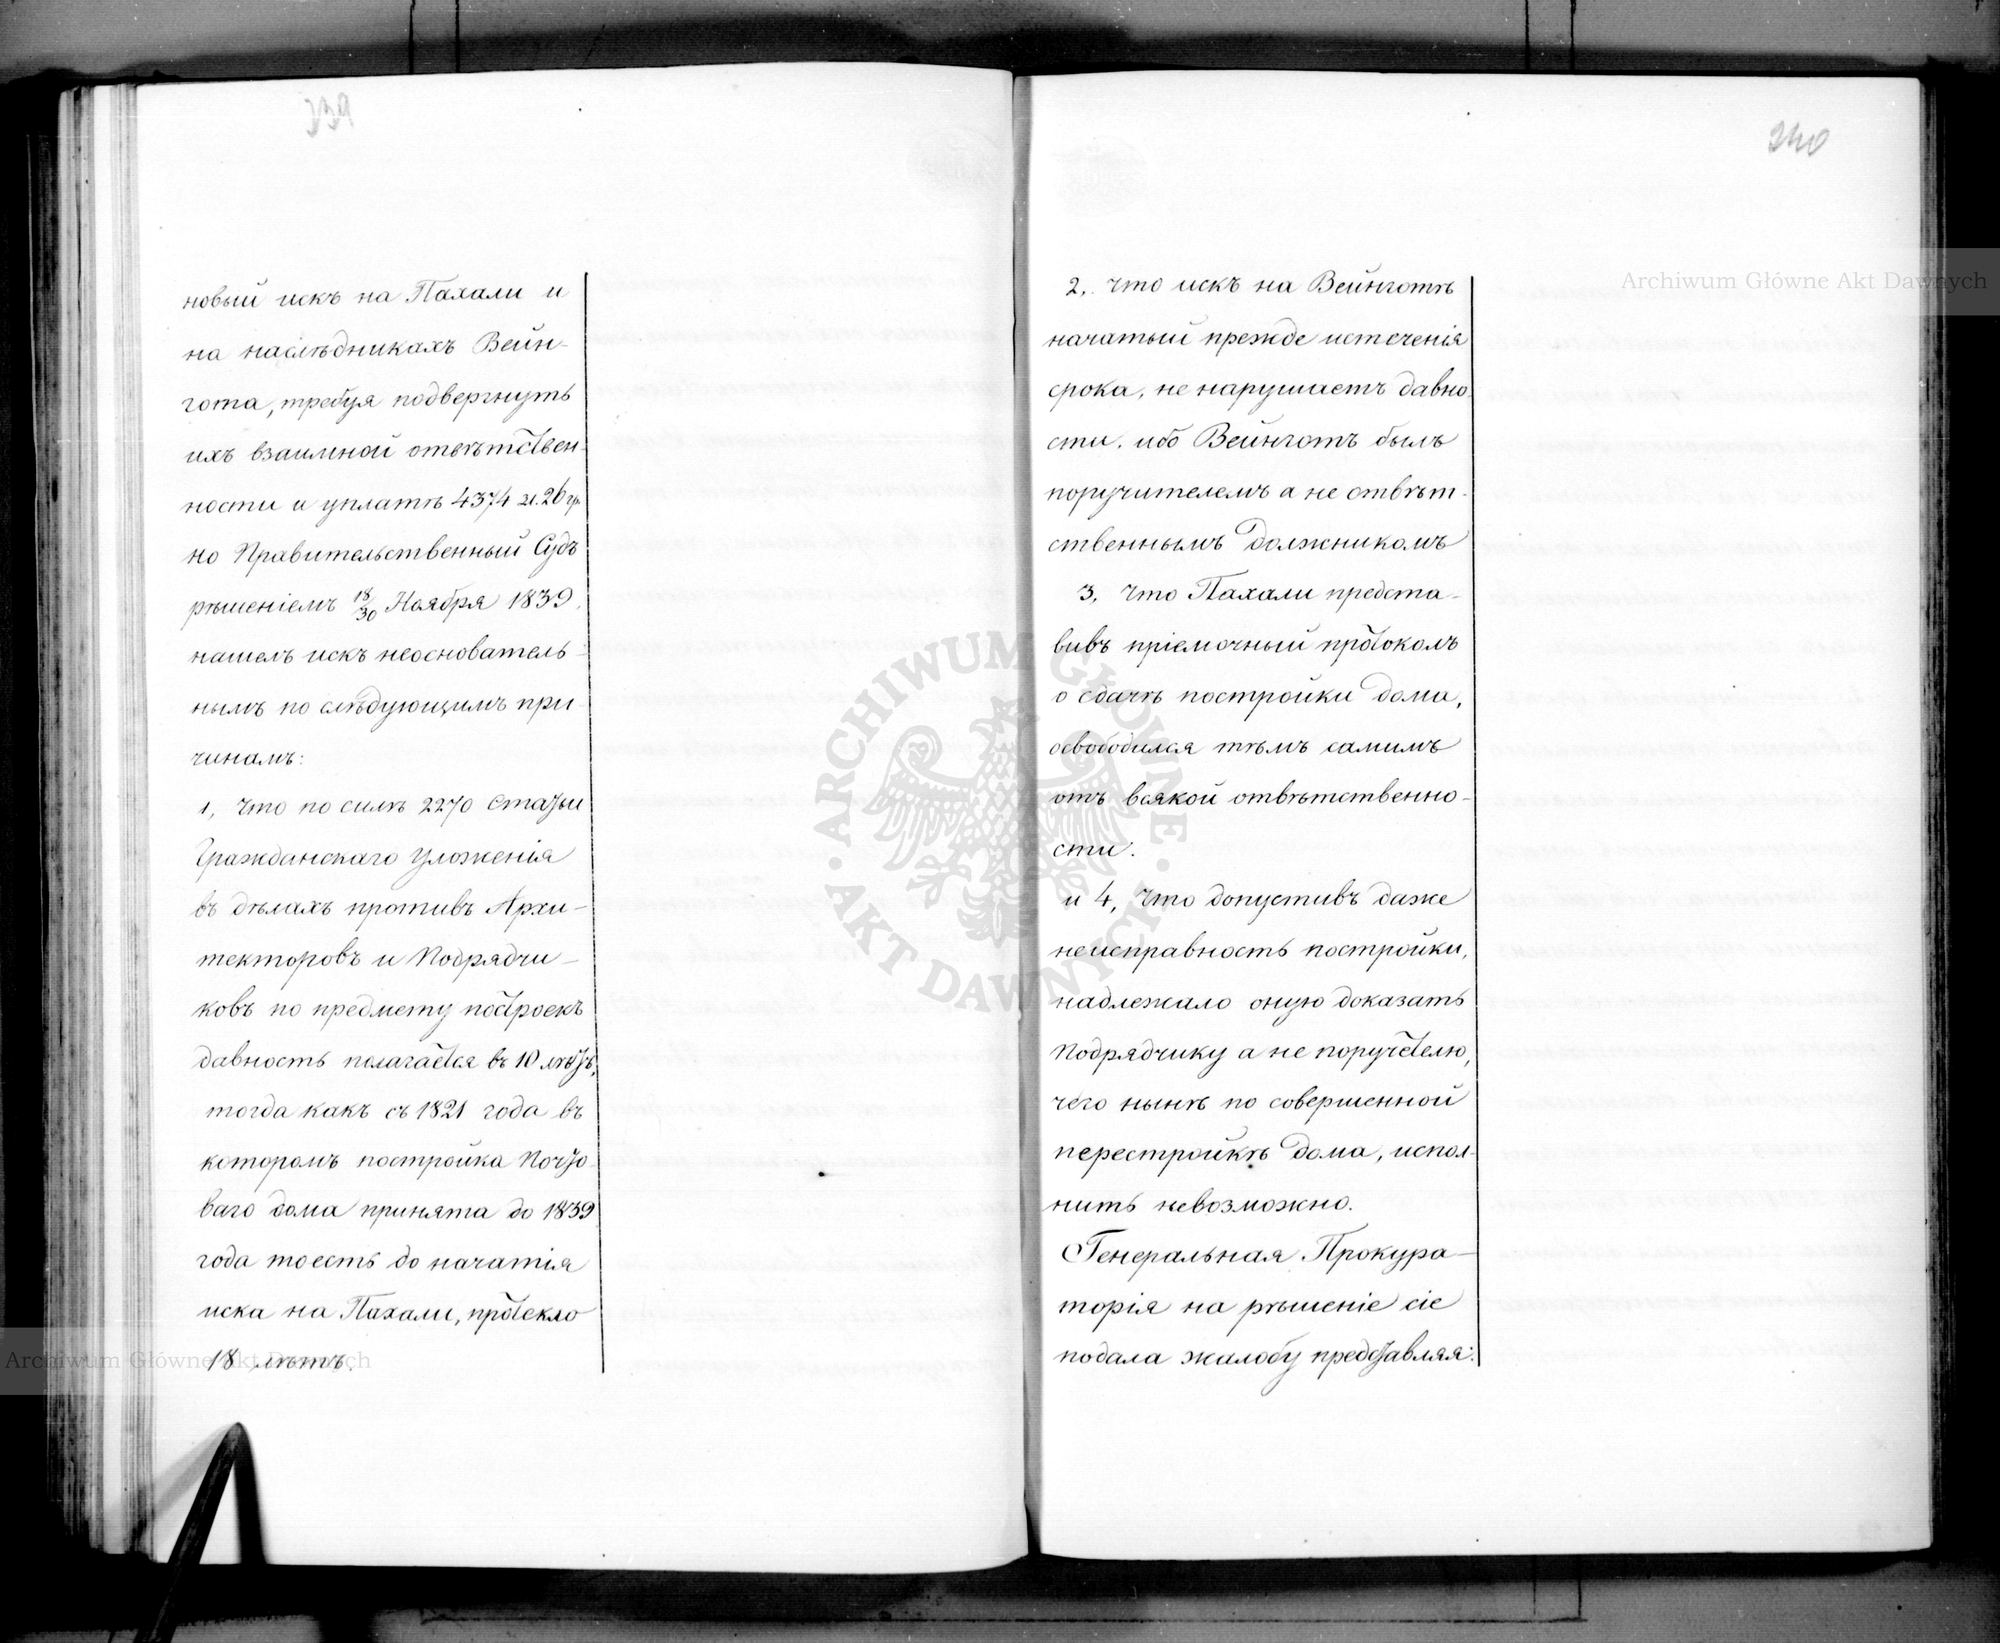 339
новый искъ на Пахали и
на наслѣдникахъ Вейн-
гота, требуя подвергнуть
ихъ взаимной отвѣтствен-
ности и уплатѣ 4374 зл. 26 гр.
но Правительственный Судъ
рѣшеніемъ 18/30 Ноября 1839,
нашелъ искъ неоснователь-
нымъ по слѣдующимъ при-
чинамъ:
1, Что по силѣ 2270 статьи
Гражданскаго Уложенія
въ дѣлахъ противъ Архи-
текторовъ и Подрядчи-
ковъ по предмету построекъ
давность полагается въ 10 лѣтъ,
тогда какъ съ 1821 года въ
которомъ постройка Почто-
ваго дома принята до 1839
года тоесть до начатія
иска на Пахали, протекло
18 лѣтъ.
240
2, что искъ на Вейнготѣ
начатый прежде истеченія
срока, не нарушаетъ давно-
сти, ибо Вейнготъ былъ
поручителемъ а не отвѣт-
ственнымъ должникомъ
3, Что Пахали предста-
вивъ пріемочный протоколъ
о сдачѣ постройки дома,
освободился тѣмъ самимъ
отъ всякой отвѣтственно-
сти.
и 4, Что допустивъ даже
неисправность постройки,
надлежало оную доказать
Подрядчику а не поручителю,
чего нынѣ по совершенной
перестройкѣ дома, испол-
нить невозможно.
Генеральная Прокура-
торія на рѣшеніе сіе
подала жалобу представляя:
Archiwum Główne Akt Dawnych
ARCHIWUM GŁÓWNE · AKT DAWNYCH ·
Archiwum Główne Akt Dawnych